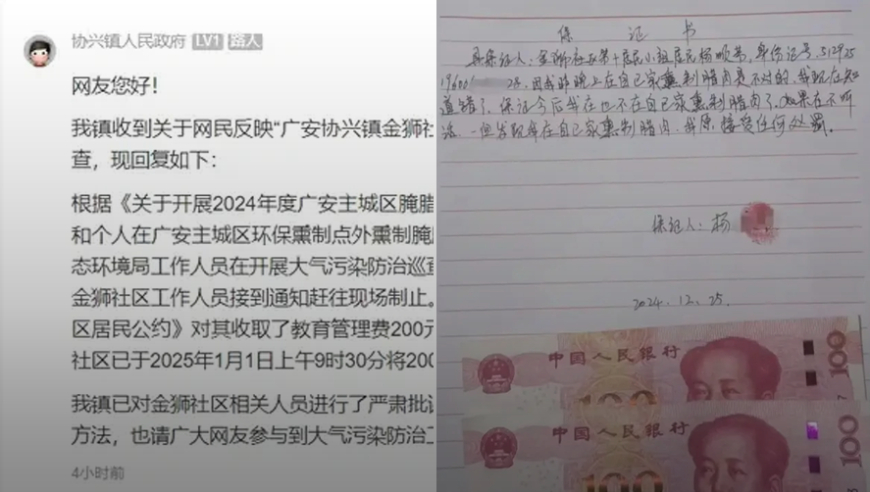 协兴镇人民政府 LV1 路人
网友您好！
我镇收到关于网民反映“广安协兴镇金狮社
查，现回复如下：
根据《关于开展2024年度广安主城区腌腊
和个人在广安主城区环保熏制点外熏制腌
态环境局工作人员在开展大气污染防治巡查
金狮社区工作人员接到通知赶往现场制止。
区居民公约》对其收取了教育管理费200元
社区已于2025年1月1日上午9时30分将200
我镇已对金狮社区相关人员进行了严肃批评
方法，也请广大网友参与到大气污染防治工
4小时前
保 证 书
具保证人：金狮社区第十居民小组居民杨 身份证号.512925
17600 28.因我昨晚上在自己家熏制腊肉是不对的.我现在知
道错了.保证今后我在也不在自己家熏制腊肉了.如果在不听
话.一但发现在自己家熏制腊肉.我愿接受任何处罚。
保证人：杨
2024.12.25.
中国人民银行 100
100
中国人民银行 100
100